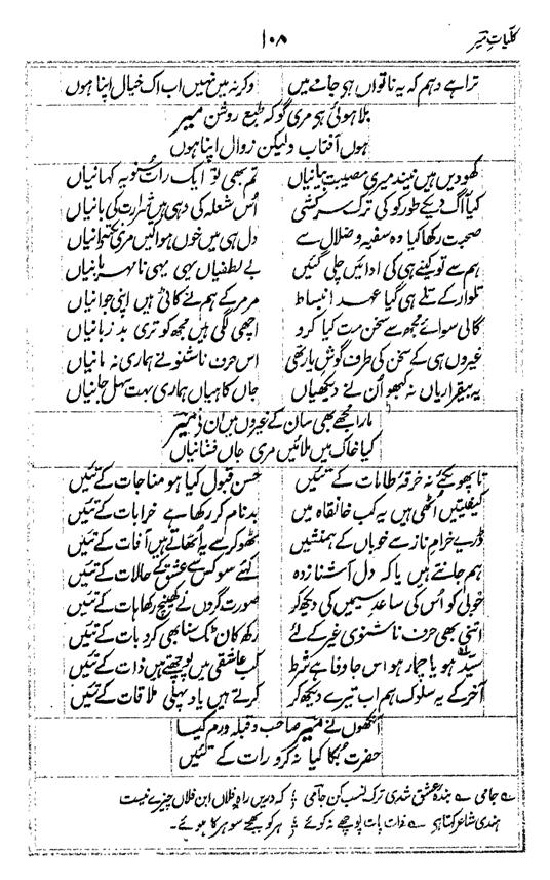 کلیاتِ میر
۱۰۸
ترا ہے وہم کہ یہ ناتواں ہو جامے میں وگرنہ میں نہیں اب اک خیال اپنا ہوں
بلا ہوئی ہو مری گو کہ طبع روشن میر
ہوں آفتاب ولیکن زوال اپنا ہوں
کھو دیں ہیں نیند میری مصیبت بیانیاں تم بھی تو ایک رات سنو یہ کہانیاں
کیا آگ دیکے طور کو کی ترک سرکشی اُس شعلہ کی وہی ہیں شرارت کی بانیاں
صحبت رکھا کیا وہ سفیہ و ضلال سے دل ہی میں خوں ہوا کیں مری نکتہ دانیاں
ہم سے تو کینے ہی کی ادائیں چلی گئیں بے لطفیاں یہی یہی نامہربانیاں
تلوار کے تلے ہی گیا عہد انبساط مر مر کے ہم نے کاٹی ہیں اپنی جوانیاں
گالی سوائے مجھ سے سخن مت کیا کرو اچھی لگی ہیں مجھ کو تری بد زبانیاں
غیروں ہی کے سخن کی طرف گوش یار تھی اس حرف ناشنو نے ہماری نہ مانیاں
یہ بیقراریاں نہ کبھو اُن نے دیکھیاں جاں کاہیاں ہماری بہت سہل جانیاں
مارا مجھے بھی سان کے غیروں میں ان نے میر
کیا خاک میں ملائیں مری جاں فشانیاں
تابھو نکئے نہ خرقۂ طامات کے تئیں حسن قبول کیا ہو مناجات کے تئیں
کیفیتیں اُٹھی ہیں یہ کب خانقاہ میں بدنام کر رکھا ہے خرابات کے تئیں
ڈریے خرام ناز سے خوباں کے ہمنشیں ٹھوکر سے یہ اُٹھاتے ہیں آفات کے تئیں
ہم جانتے ہیں یا کہ دل آشنا زدہ کہئے سو کس سے عشق کے حالات کے تئیں
خوبی کو اُس کی ساعدِ سیمیں کی دیکھ کر صورت گروں نے کھینچ رکھا ہات کے تئیں
اتنی بھی حرف ناشنوی غیر کے لئے رکھ کان ٹک سنا بھی کرو بات کے تئیں
سیّد ہو یا چمار ہو اس جا وفا ہے شرط کب عاشقی میں پوچھتے ہیں ذات کے تئیں
آخر کے یہ سلوک ہم اب تیرے دیکھ کر کرتے ہیں یاد پہلی ملاقات کے تئیں
آنکھوں نے میر صاحب و قبلہ ورم کیا
حضرت بُکا کیا نہ کرو رات کے تئیں
جامی بندۂ عشق شدی ترک نسب کن جامی کہ دریں راہ فلاں ابن فلاں چیزے نیست
ہندی شاعر کہتا ہے ذات پات پوچھے نہ کوئے ہر کو بھجے سو ہر کا ہوئے۔